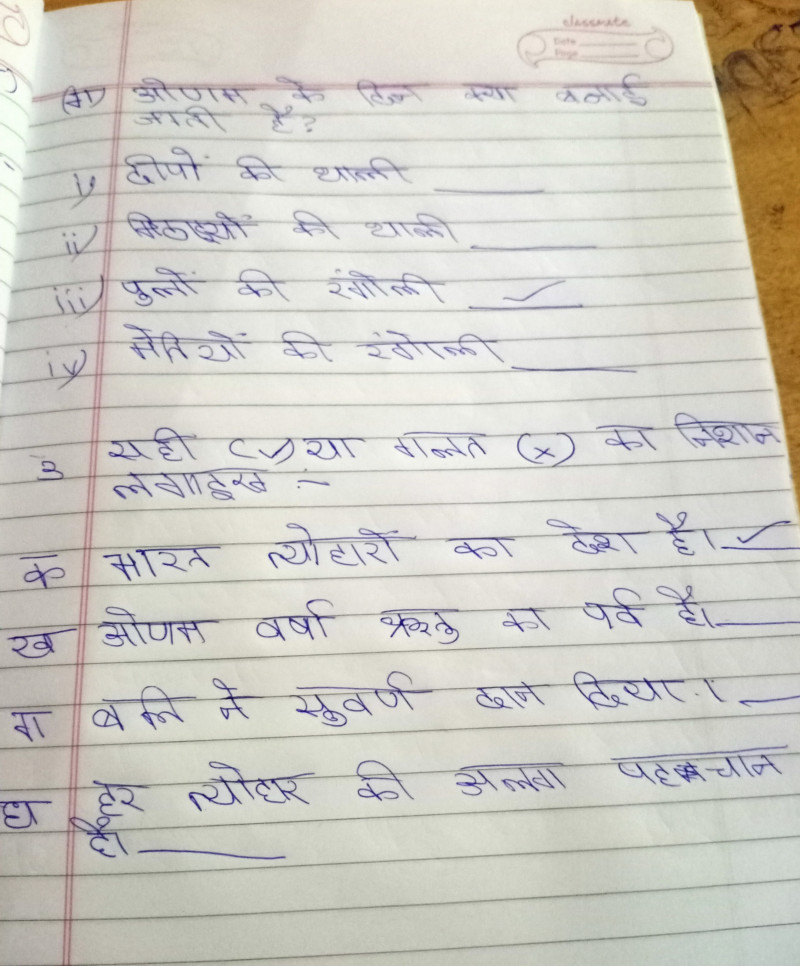 classmate
Date
Page
ग) ओणम के दिन क्या बनाई
जाती है?
i) दीपों की थाली
ii) मिठाइयों की थाली
iii) फुलों की रंगोली ✓
iv) मोतियों की रंगोली
3 सही (✓) या गलत (×) का निशान
लगाइए :-
क भारत त्योहारों का देश है। ✓
ख ओणम वर्षा ऋतु का पर्व है।
ग बलि ने सुवर्ण दान दिया।
घ हर त्योहार की अलग पहचान
है।